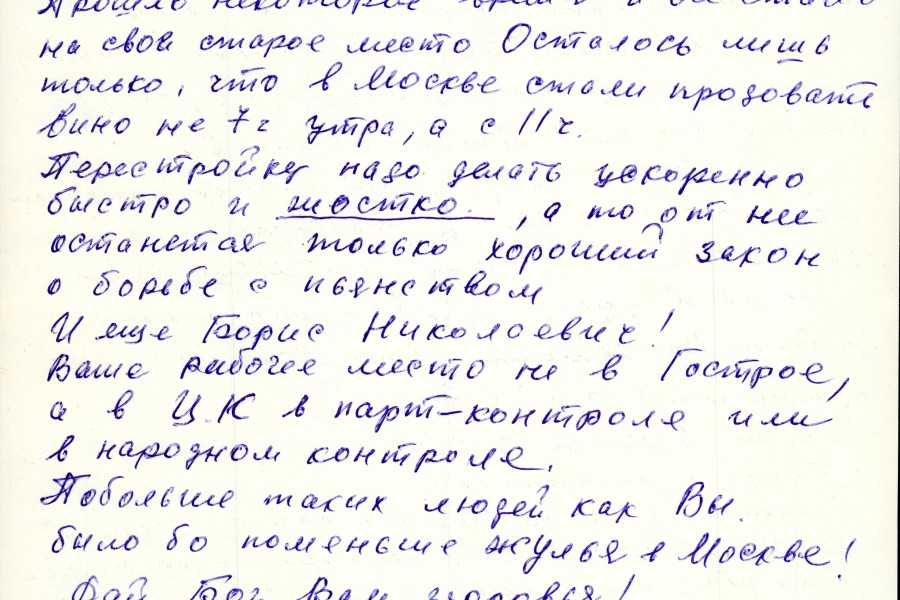 Прошло некоторое время и всё стало
на свое старое место Осталось лишь
только, что в Москве стали продовать
вино не 7ч утра, а с 11ч.
Перестройку надо делать ускоренно
быстро и жостко, а то от нее
останется только хороший закон
о борьбе с пьянством
И еще Борис Николаевич!
Ваше рабочее место не в Гострое,
а в ЦК в парт-контроля или
в народном контроля.
Побольше таких людей как Вы.
было бо поменьше жулья в Москве!
Дай Бог Вам здоровья!